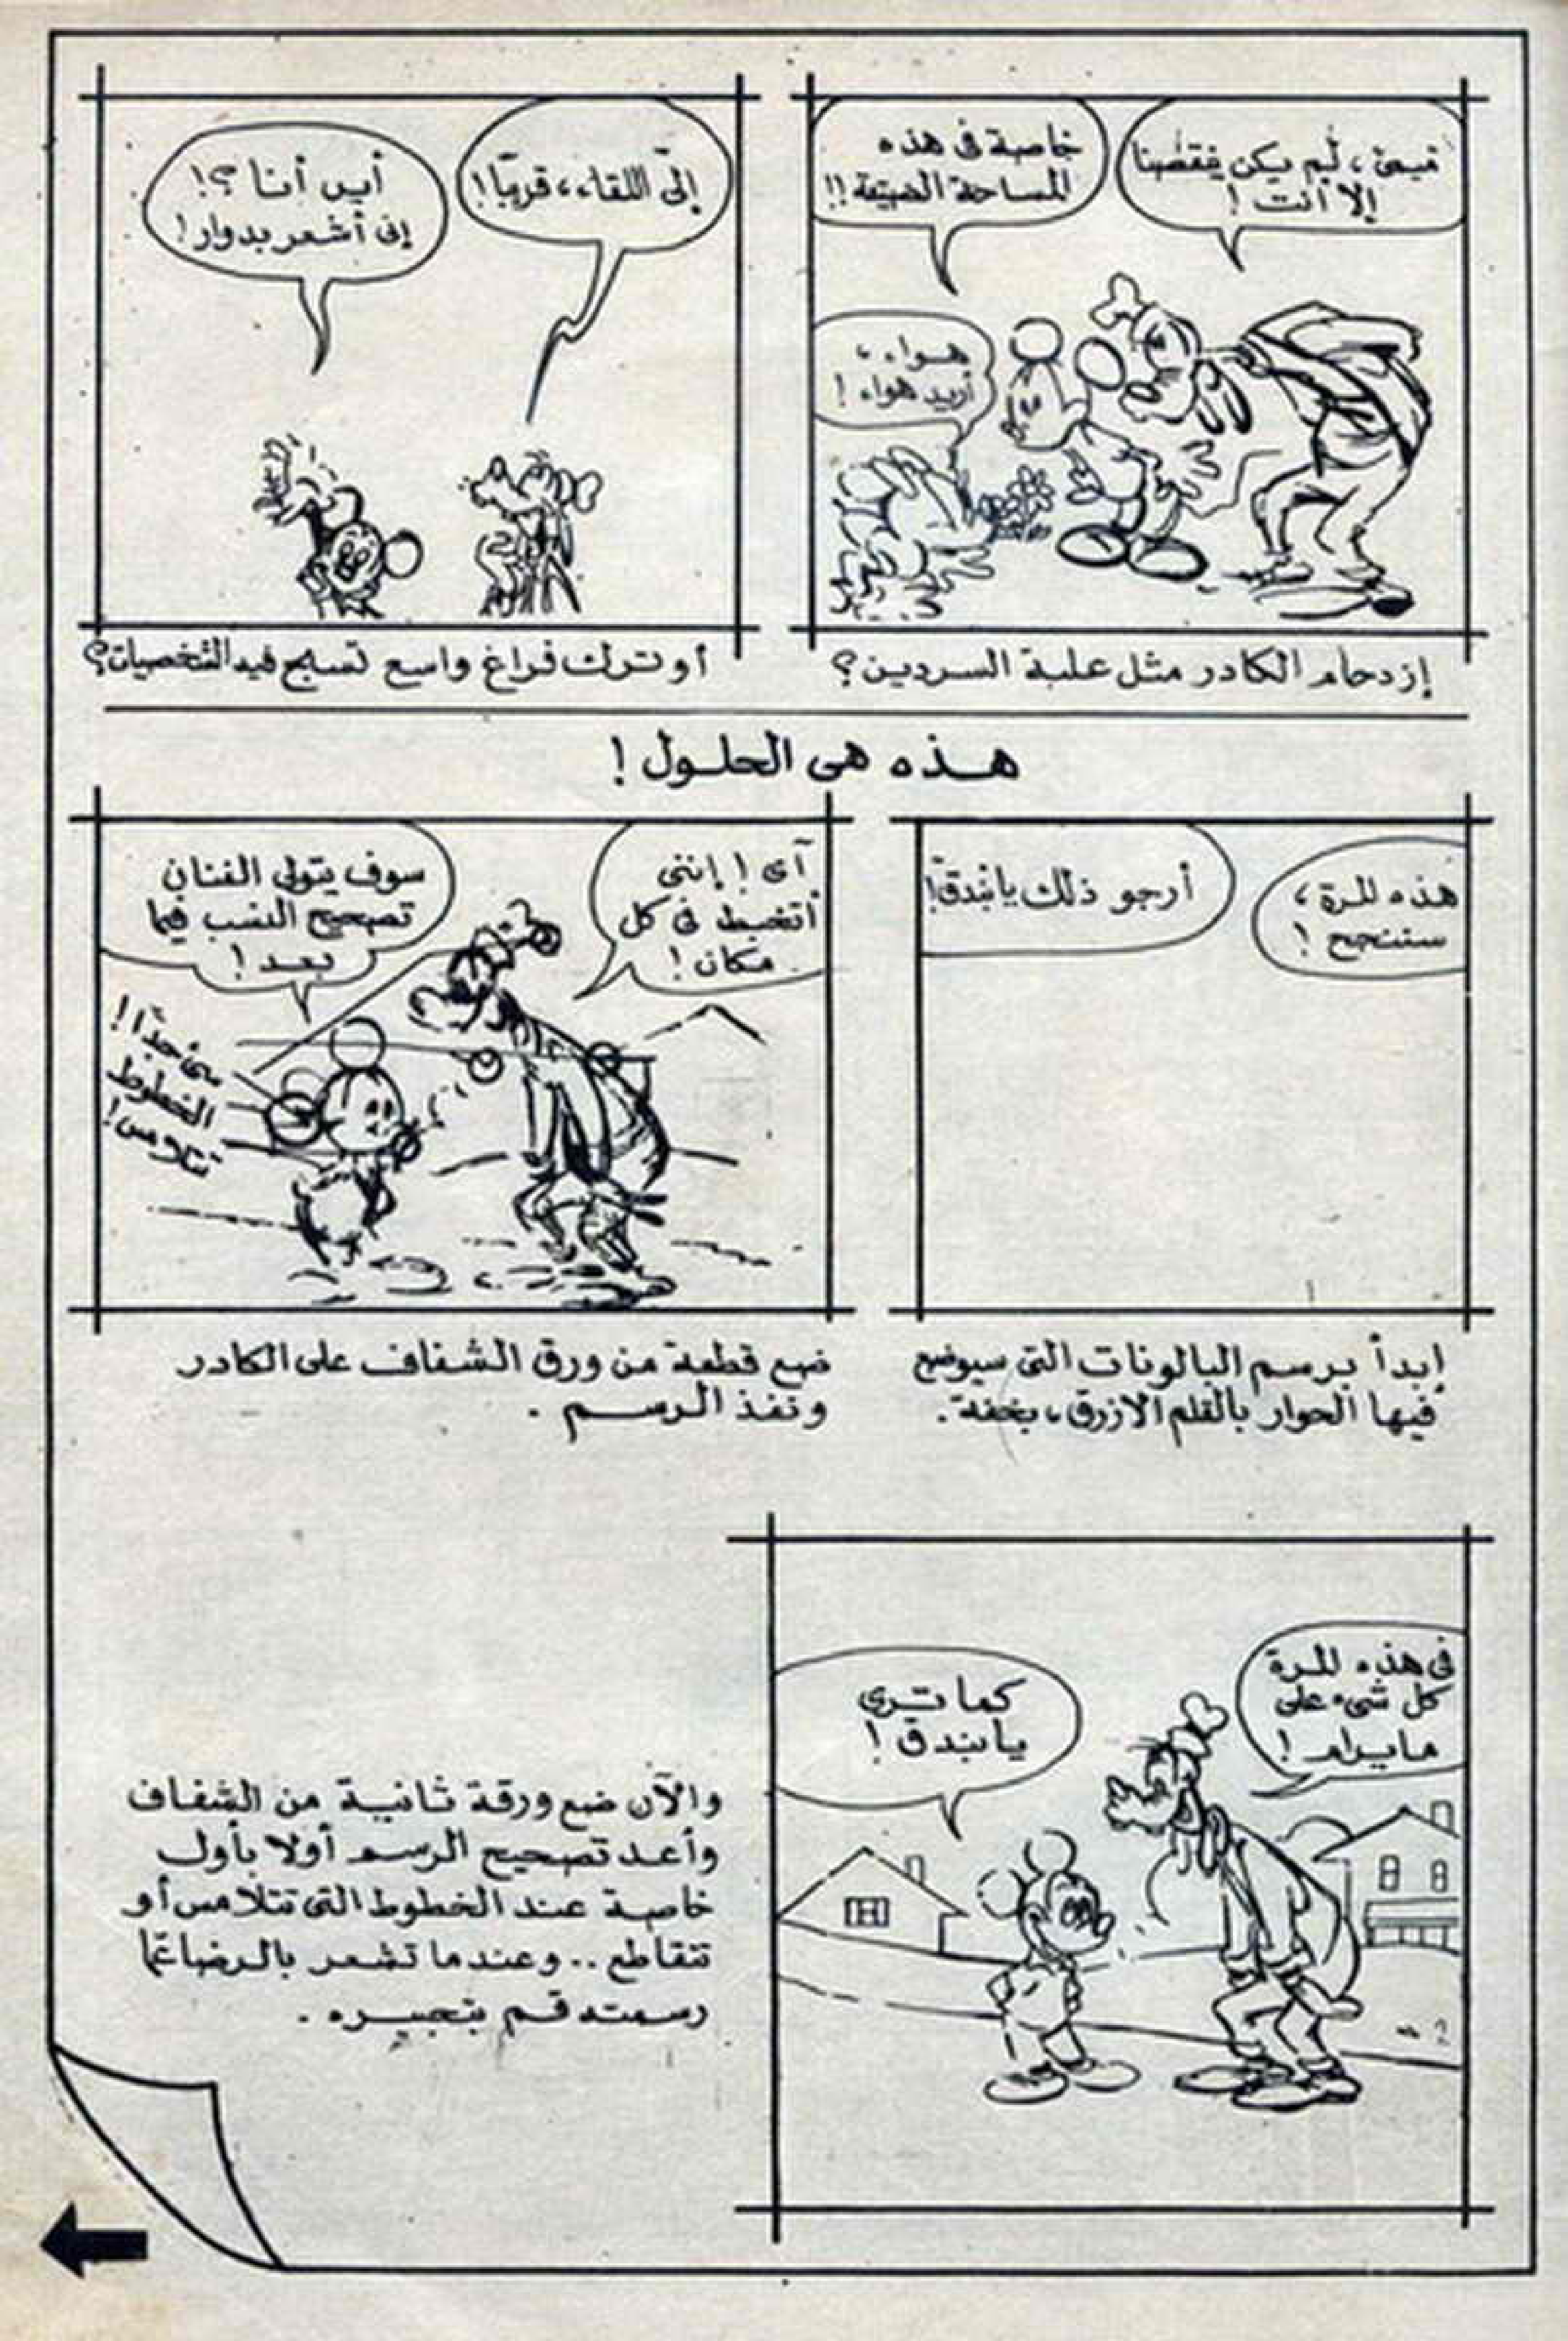 ميمى، لم يكن ينقصنا
إلا أنت!
خاصة فى هذه
المساحة الضيقة!!
هواء،
أريد هواء!
إزدحام الكادر مثل علبة السردين؟
إلى اللقاء، قريبًا!
أين أنا؟!
إنى أشعر بدوار!
أو ترك فراغ واسع تسبح فيه الشخصيات؟
هذه هى الحلول!
هذه المرة،
سننجح!
أرجو ذلك يابندق!
إبدأ برسم البالونات التى سيوضع
فيها الحوار بالقلم الازرق، بخفة.
آى! إننى
أتخبط فى كل
مكان!
سوف يتولى الفنان
تصحيح النسب فيما
بعد!
سىء جدًا!
الخطوط
تتلامس!
ضع قطعة من ورق الشفاف على الكادر
ونفذ الرسم.
فى هذه المرة
كل شىء على
مايرام!
كما ترى
يابندق!
والآن ضع ورقة ثانية من الشفاف
وأعد تصحيح الرسم أولا بأول
خاصة عند الخطوط التى تتلامس أو
تتقاطع.. وعندما تشعر بالرضا عما
رسمته قم بتحبيره.